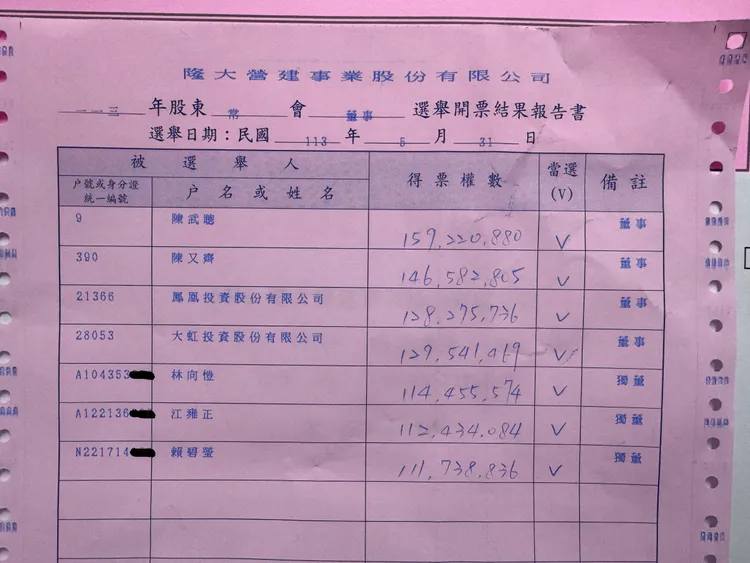 隆大營建事業股份有限公司
一一三 年股東 常 會 董事 選舉開票結果報告書
選舉日期：民國 113 年 5 月 31 日
被選舉人 得票權數 當選(V) 備註
戶號或身分證統一編號 戶名或姓名
9 陳武聰 159,220,880 V 董事
390 陳又齊 146,582,805 V 董事
21366 鳳凰投資股份有限公司 128,275,736 V 董事
28053 大虹投資股份有限公司 129,541,469 V 董事
A104353 林向愷 114,455,574 V 獨董
A122136 江雍正 112,434,084 V 獨董
N221714 賴碧瑩 111,738,836 V 獨董